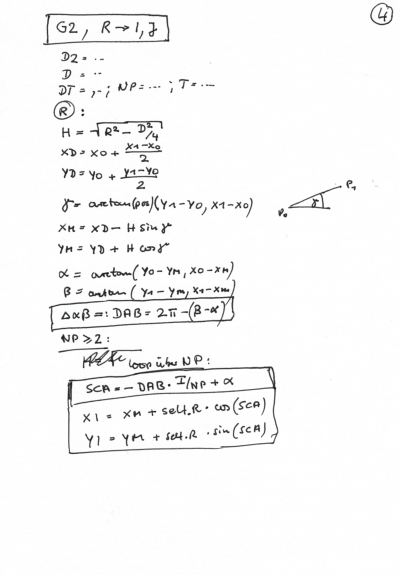 4
G2, R → 1, J
D2 = ...
D = ..
DT = ,-; NP = ... ; T = ...
R :
H = √R² - D²/4
XD = X0 + X1-X0/2
YD = Y0 + Y1-Y0/2
γ = arctan(pos)(Y1-Y0, X1-X0)
P0 γ P1
XM = XD - H sin γ
YM = YD + H cos γ
α = arctan(Y0-YM, X0-XM)
β = arctan(Y1-YM, X1-XM)
Δαβ =: DAB = 2π-(β-α)
NP ≥ 2 :
Loop über NP :
SCA = - DAB · I/NP + α
XI = XM + self.R · cos(SCA)
YI = YM + self.R · sin(SCA)